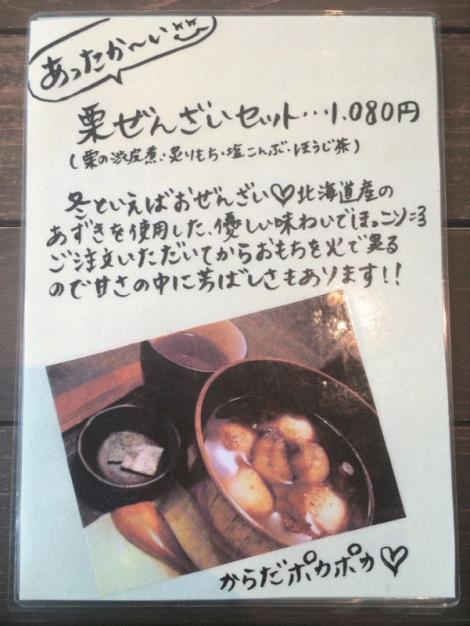 あったか〜い
栗ぜんざいセット…1,080円
(栗の渋皮煮・炙りもち・塩こんぶ・ほうじ茶)
冬といえばおぜんざい♡北海道産の
あずきを使用した、優しい味わいでほっこり
ご注文いただいてからおもちを火で炙る
ので甘さの中に芳ばしさもあります!!
からだポカポカ♡